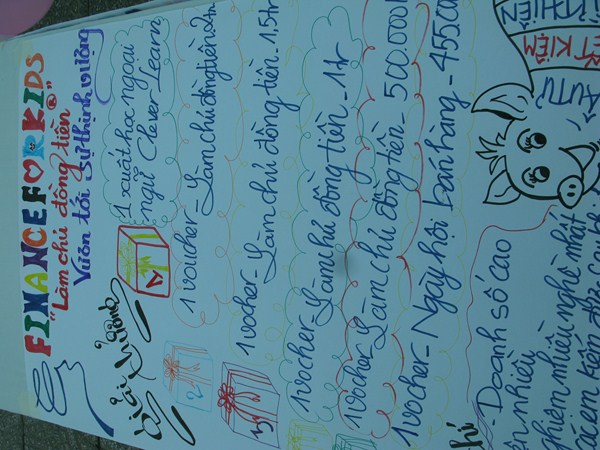 FINANCE FOR KIDS
"Làm chủ đồng tiền"®
Vươn tới sự thịnh vượng
Giải thưởng
1 xuất học ngoại
ngữ Clever Learn
1 voucher - Làm chủ đồng tiền 2tr
2
1 vocher - Làm chủ đồng tiền - 1.5tr
3
1 vocher Làm chủ đồng tiền - 1tr
1 vocher Làm chủ đồng tiền - 500.000
1 vocher - Ngày hội bán hàng - 455.00
KIỆM
chí
- Doanh số cao
nhiều
nghiệm nhiều nghề nhất
các em kiếm được